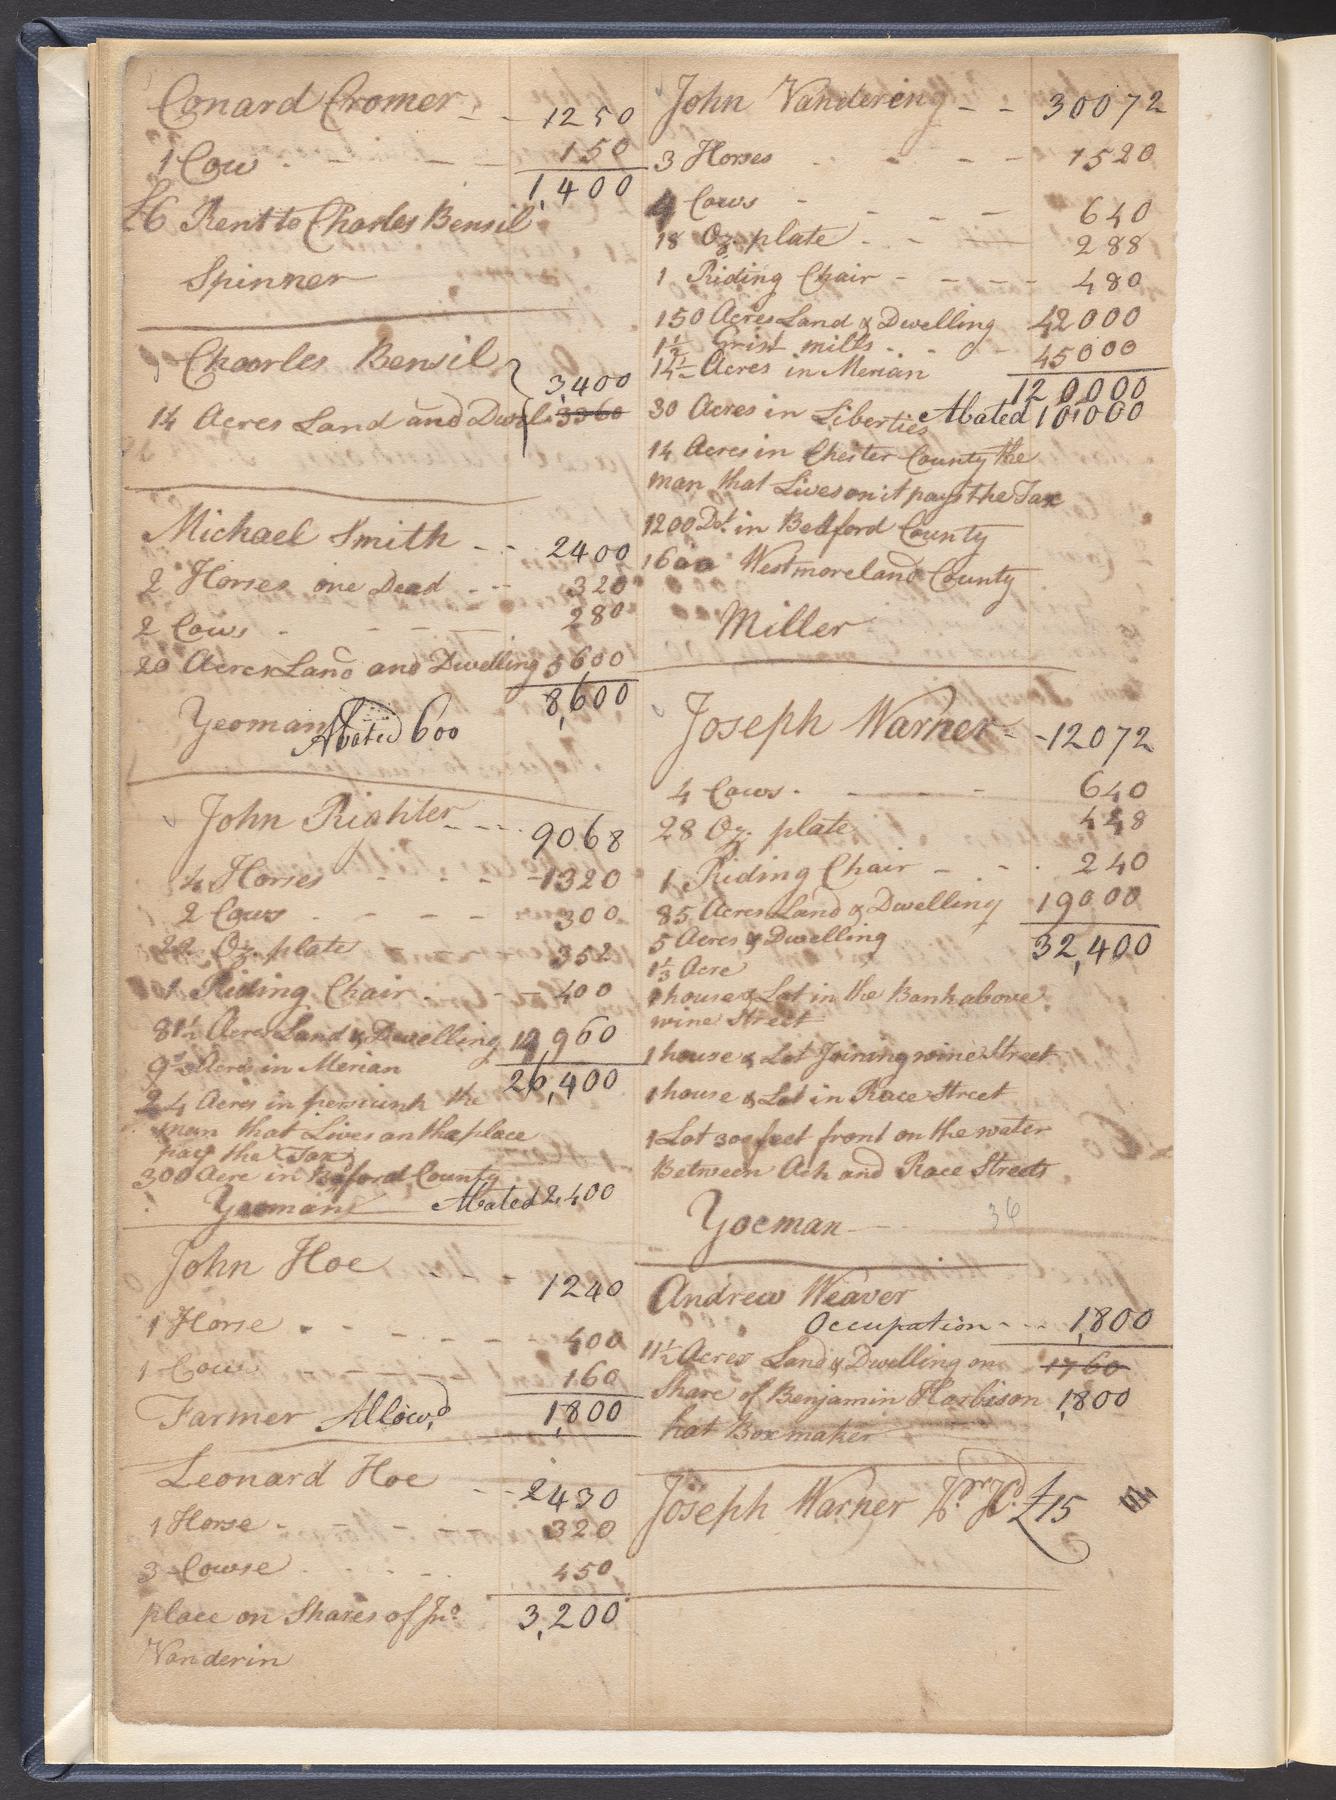 Conard Cromer - - 1250
1 Cow - - - - 150
1,400
£6 Rent to Charles Bensil
Spinner
Chaorles Bensil
3,400
14 Acres Land and Dwel 3360
Michael Smith - - 2400
2 Horses one Dead - - 320
2 Cows - - - - 280
20 Acres Land and Dwelling 5600
8,600
Yeoman Abated 600
John Righter - - - 9068
4 Horses - - - - 1320
2 Cows - - - - 300
22 Oz. plate 352
1 Riding Chair - - - 400
81½ Acres Land & Dwelling 14,960
9 Acres in Merian
26,400
24 Acres in the
man that Lives on the place
pay the Tax
300 Acre in Bedford County
Yeoman Abated 2,400
John Hoe - - - 1240
1 Horse - - - - - 400
1 Cow - - - 160
Farmer Allow,d 1,800
Leonard Hoe - - 2430
1 Horse - 320
3 Cowse - - - - 450
place on Shares of Jno. 3,200
Vanderin
John Vandering - - 30072
3 Horses - - - - 1520
4 Cows - - - - 640
18 Oz. plate - - - 288
1 Riding Chair - - - - 480
150 Acres Land & Dwelling 42000
1½ Grist mills - - - 45000
14½ Acres in Merian
120000
30 Acres in Liberties Abated 101000
14 Acres in Chester County the
man that Lives on it pays the Tax
1200 Do. in Bedford County
1600 Westmoreland County
Miller
Joseph Warner - - 12072
4 Cows - - - - 640
28 Oz. plate 448
1 Riding Chair - - - 240
85 Acres Land & Dwelling 19000
5 Acres & Dwelling 32,400
1⅓ Acre
1 house & Lot in the Bank above
wine Street
1 house & Lot Joining wine Street
1 house & Lot in Race Street
1 Lot 300 feet front on the water
Between Ach and Race Streets
Yoeman - 36
Andrew Weaver
Occupation - - - 1,800
11½ Acres Land & Dwelling on 1760
Share of Benjamin Harbison 1,800
hat Boxmaker
Joseph Warner £15